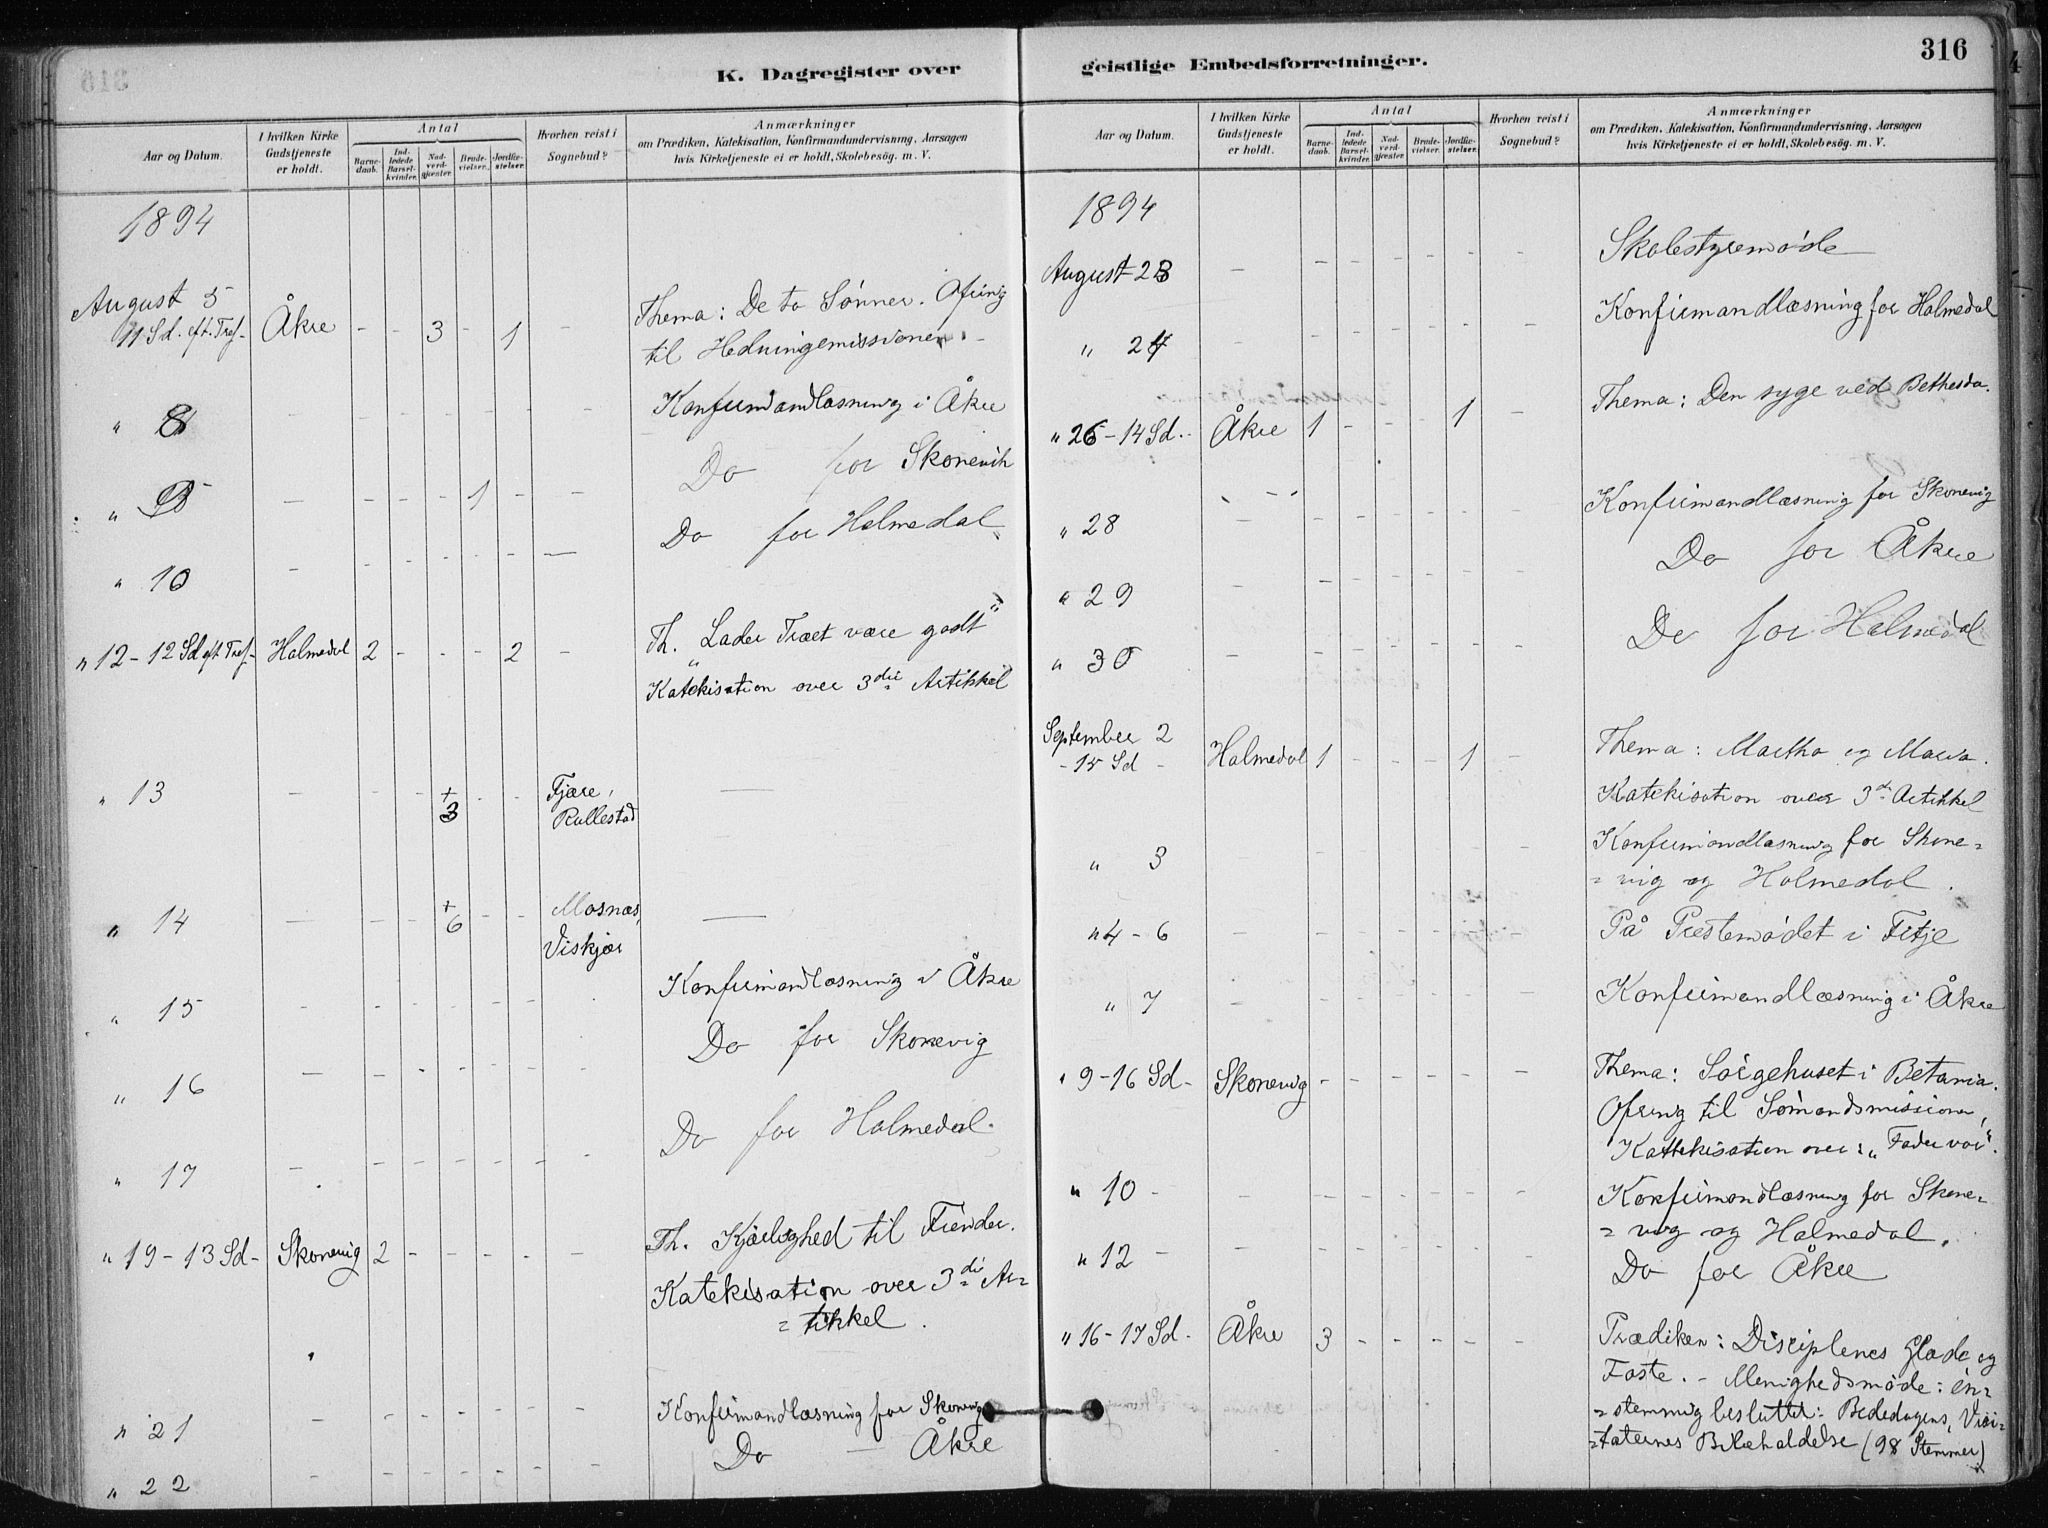 K. Dagregister over geistlige Embedsforretninger. 316
Aar og Datum.
I hvilken Kirke Gudstjeneste er holdt.
Antal
Barnedaab.
Indledede Barselkvinder.
Nadverdgjester.
Brudevielser.
Jordfæstelser.
Hvorhen reist i Sognebud?
Anmærkninger
om Prædiken, Katekisation, Konfirmandundervisning, Aarsagen
hvis Kirketjeneste ei er holdt, Skolebesøg. m. V.
1894
August 5 Thema: De to Sønner. Ofring
11 Sd. eft. Tref. Åkre - - 3 - 1 - til Hedningemissionen.
" 8 Konfirmandlæsning i Åkre
" - - - - 1 - - Do for Skonevik
" 10 - Do for Halmedal
" 12 - 12 Sd eft Tref. Halmedal 2 - - - 2 - Th. "Lader Træet være godt"
Katekisation over 3die Artikkel
" 13 - - - + 3 - - Fjære,
Rullestad
" 14 - - - + 6 - - Mosnæs,
Viskjær
" 15 Konfirmandlæsning i Åkre
" 16 Do for Skonevig
" 17 Do for Halmedal.
" 19 - 13 Sd - Skonevig 2 - - - - - Th. Kjærlighed til Fiender.
Katekisation over 3die Ar=
= tikkel.
" 21 Konfirmandlæsning for Skonevig
" 22 Do — Åkre
Aar og Datum.
I hvilken Kirke Gudstjeneste er holdt.
Antal
Barnedaab.
Indledede Barselkvinder.
Nadverdgjester.
Brudevielser.
Jordfæstelser.
Hvorhen reist i Sognebud?
Anmærkninger
om Prædiken, Katekisation, Konfirmandundervisning, Aarsagen
hvis Kirketjeneste ei er holdt, Skolebesøg. m. V.
1894
August 23 - Skolestyremøde
" 24 - Konfirmandlæsning for Halmedal
" 26 - 14 Sd. Åkre 1 - - - 1 - Thema: Den syge ved Bethesda.
" 28 - Konfirmandlæsning for Skonevig
" 29 - Do for Åkre
" 30 - Do for Halmedal
September 2
- 15 Sd - Halmedal 1 - - - 1 - Thema: Martha og Maria.
Katekisation over 3die Artikkel
" 3 Konfirmandlæsning for Skone=
= vig og Halmedal.
" 4 - 6 - På Prestemødet i Fitje
" 7 - Konfirmandlæsning i Åkre
" 9 - 16 Sd - Skonevig - Thema: Sørgehuset i Betania.
Ofring til Sømandsmissionen,
Katekisation over: "Fader vor".
" 10 - Konfirmandlæsning for Skone=
= vig og Halmedal.
" 12 - Do for Åkre
" 16 - 17 Sd - Åkre 3 - - - - - Prædiken: Disciplenes Glæde og
Faste. - Menighedsmøde: én=
= stemmig besluttet: Bededagens, Visi=
= taternes Bibeholdelse (98 Stemmer)